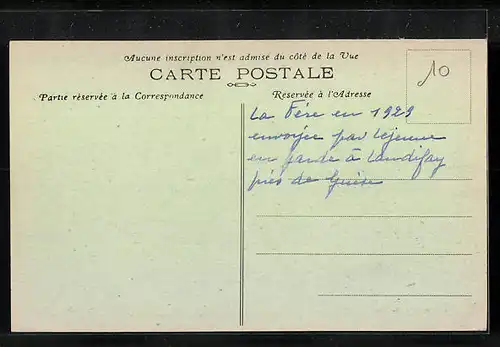 Aucune inscription n'est admise du côté de la Vue
CARTE POSTALE
Partie réservée à la Correspondance
Réservée à l'Adresse
10
La Fère en 1929
envoyée par Lejeune
en garde à Landifay
près de Guise